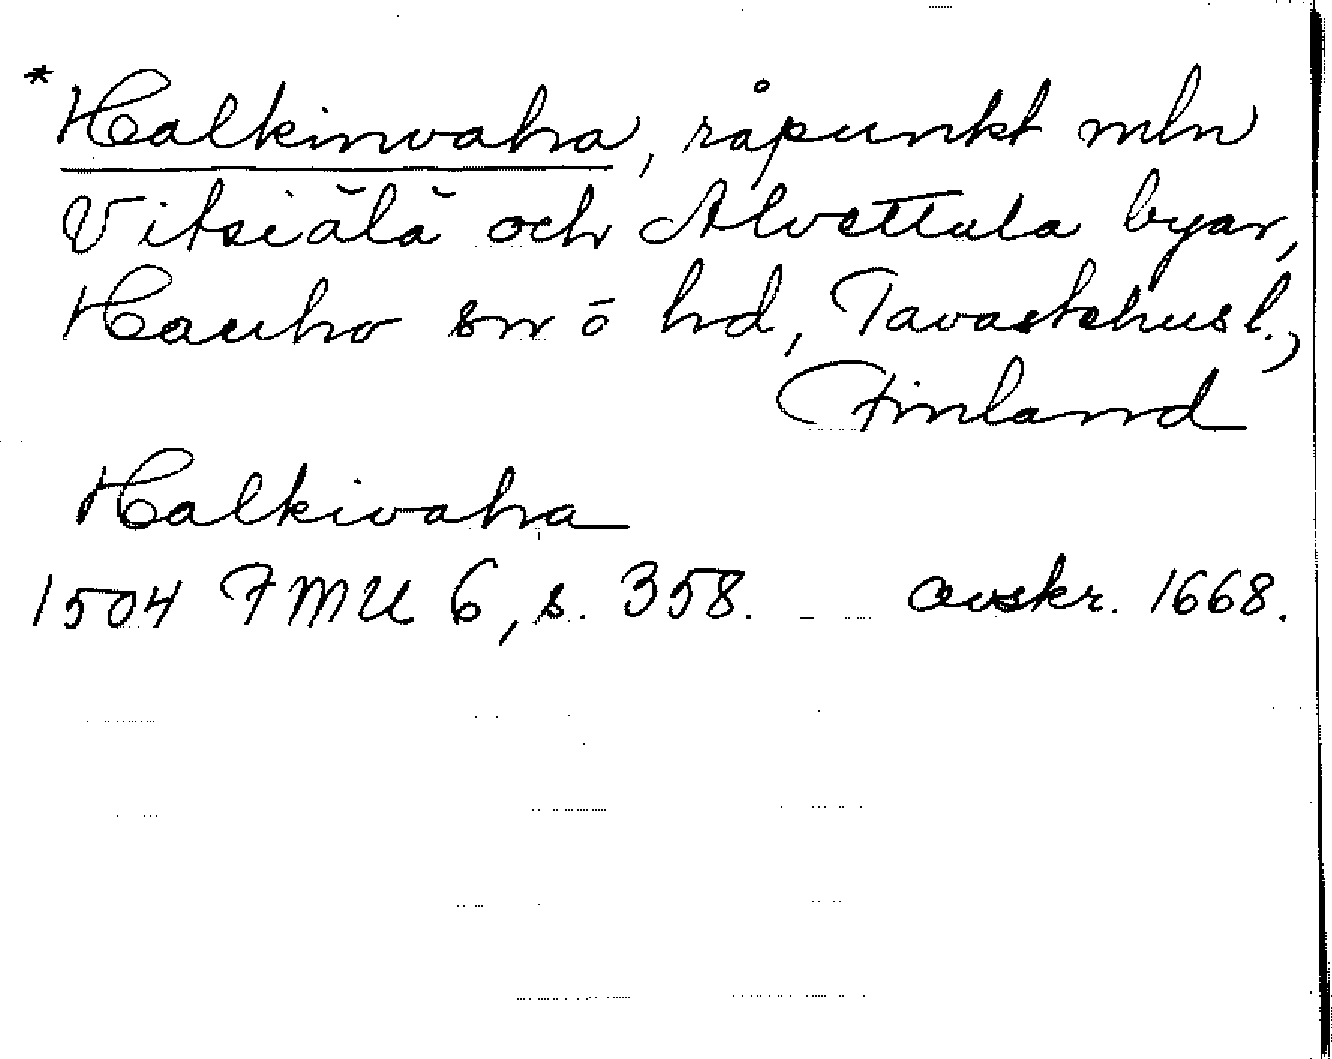 *Halkinvaha, råpunkt mln
Vitsiälä och Alvettula byar,
Hauho sn o hd, Tavastehusl.,
Finland
Halkivaha
1504 FMU 6, s. 358. avskr. 1668.